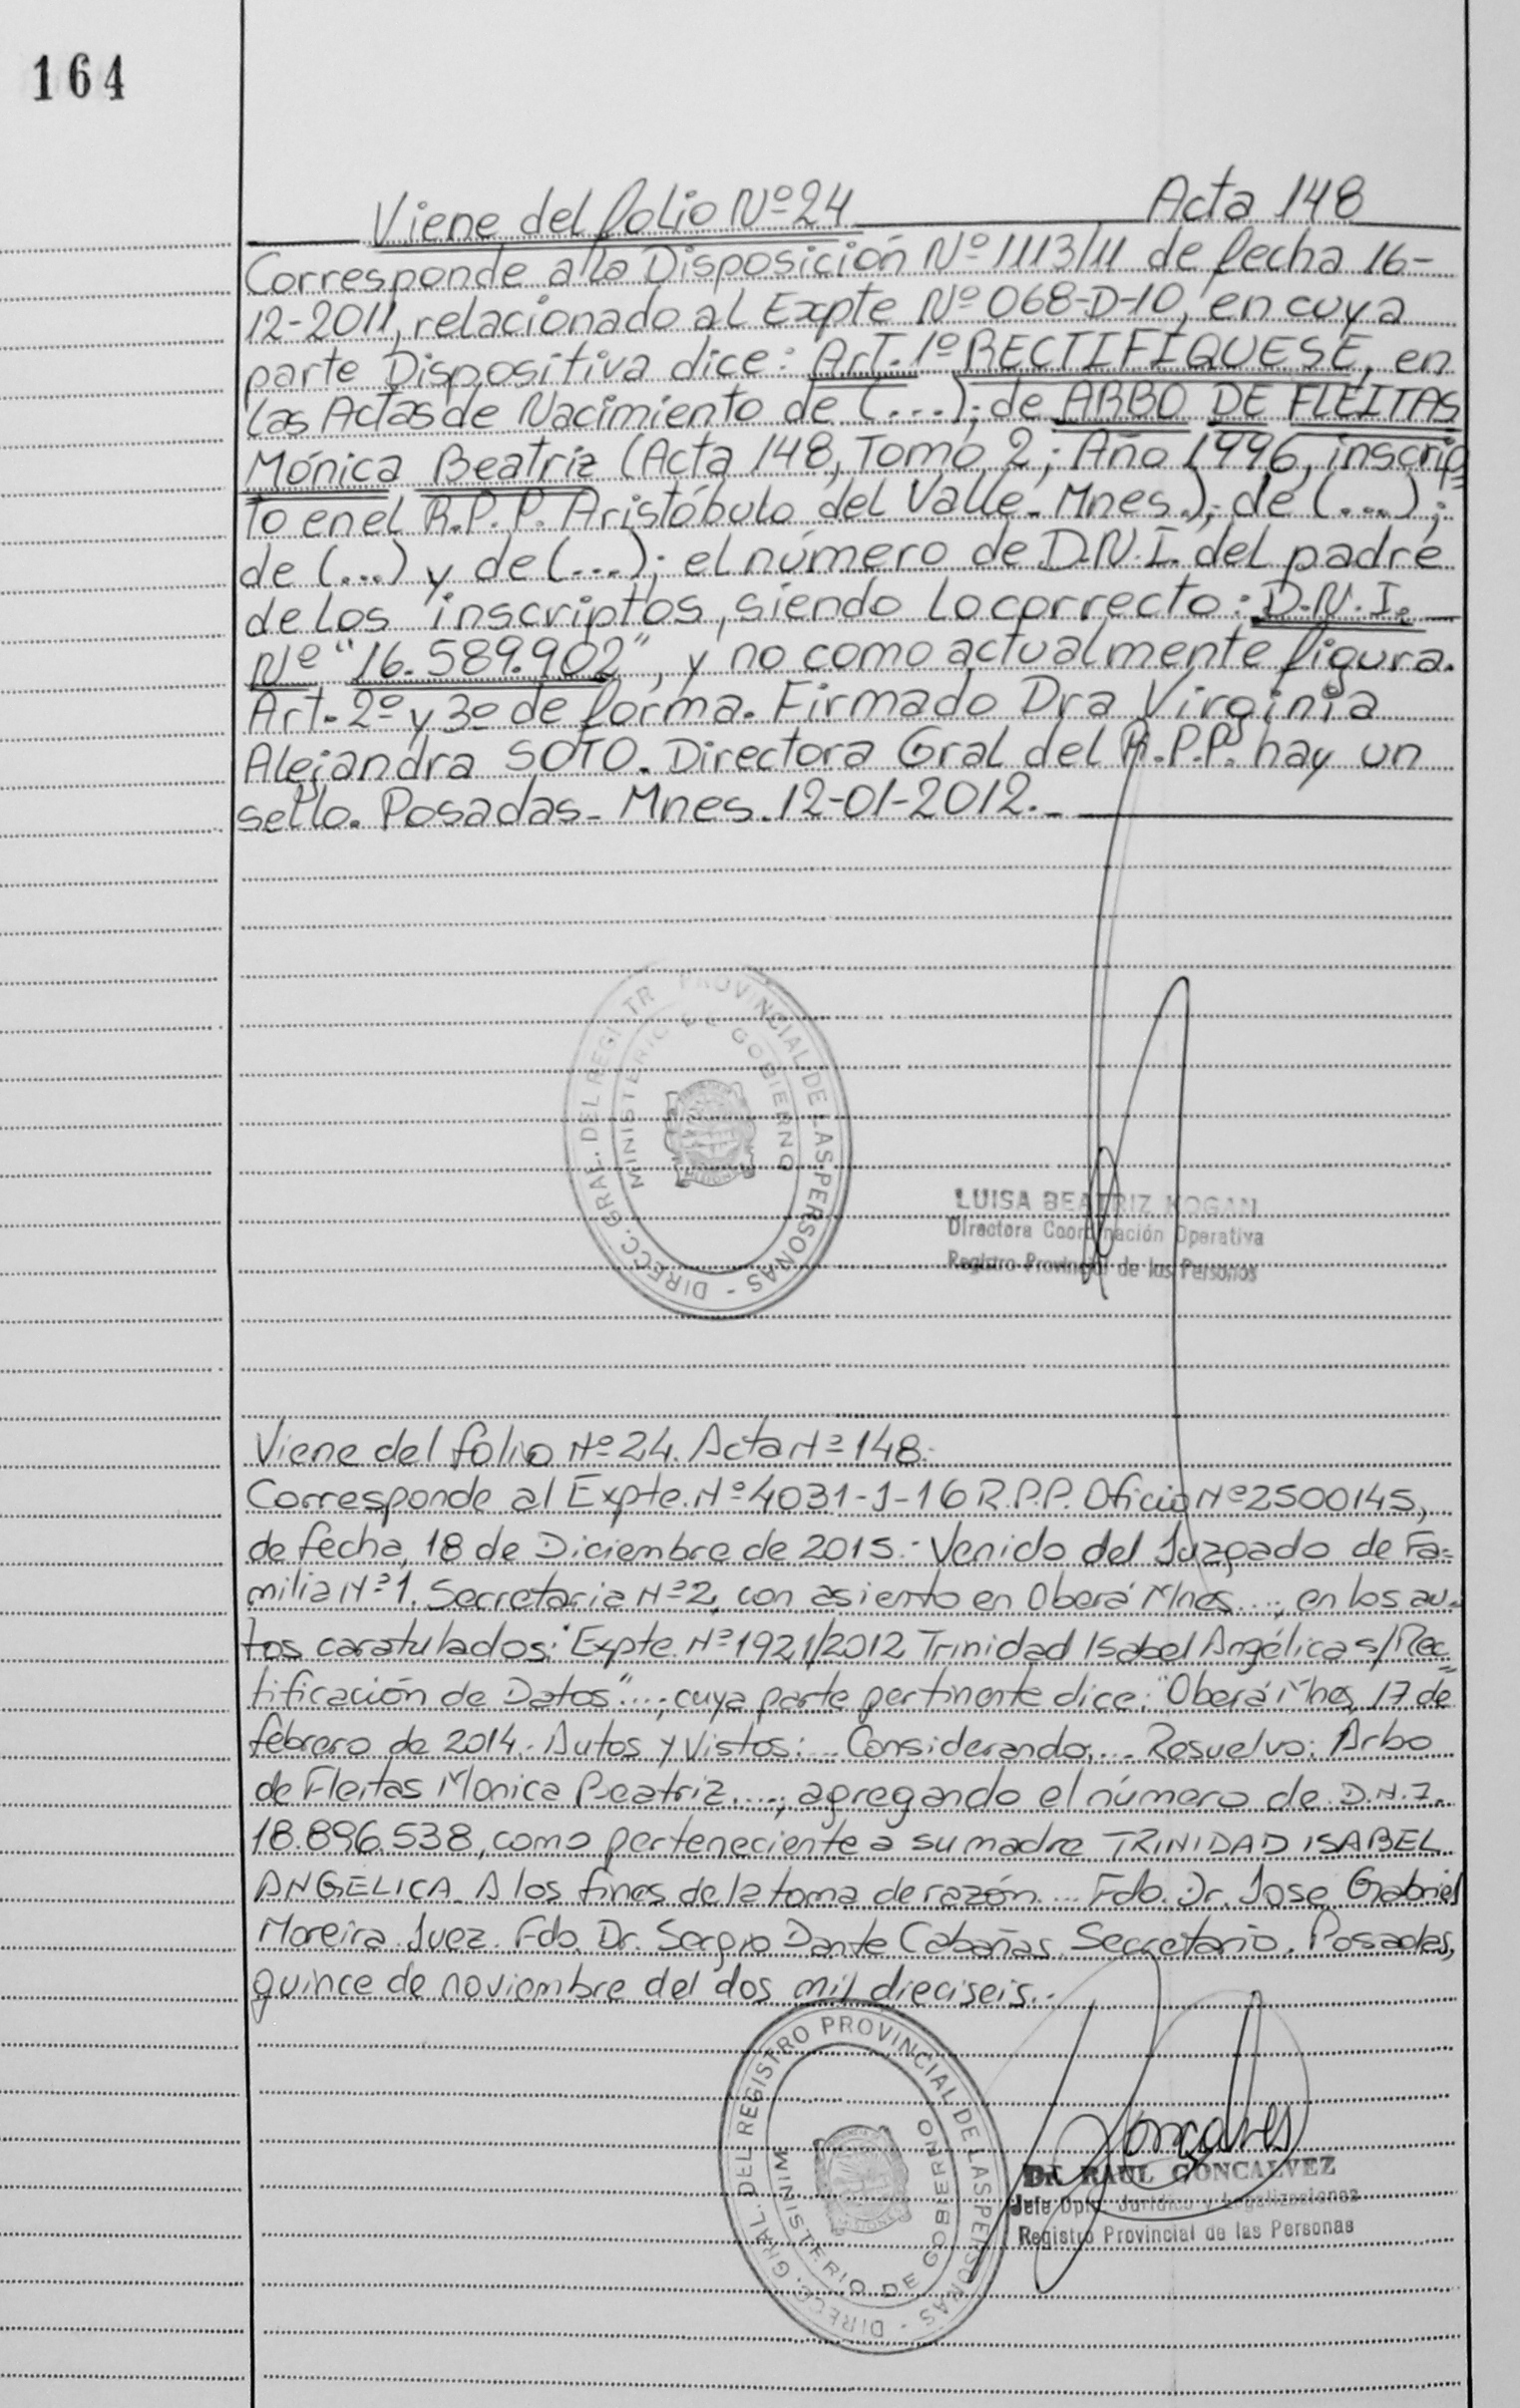 164
Viene del folio Nº 24 Acta 148
Corresponde a la Disposición Nº 1113/11 de fecha 16-
12-2011, relacionado al Expte Nº 068-D-10, en cuya
parte Dispositiva dice: Art. 1º RECTIFIQUESE, en
las Actas de Nacimiento de (...); de ARBO DE FLEITAS
Mónica Beatriz (Acta 148, Tomo 2; Año 1996, inscrip=
to en el R.P.P. Aristóbulo del Valle - Mnes.); de (...);
de (...) y de (...); el número de D.N.I. del padre
de los inscriptos, siendo lo correcto: D.N.I.
Nº "16.589.902", y no como actualmente figura.
Art. 2º y 3º de forma. Firmado Dra Virginia
Alejandra SOTO. Directora Gral del R.P.P. hay un
sello. Posadas - Mnes. 12-01-2012.-
DIRECC. GRAL. DEL REGISTR PROVINCIAL DE LAS PERSONAS -
MINISTERIO DE GOBIERNO
LUISA BEATRIZ KOGAN
Directora Coordinación Operativa
Registro Provincial de las Personas
Viene del folio Nº 24. Acta Nº 148.-
Corresponde al Expte. Nº 4031-J-16 R.P.P. Oficio Nº 2500145,
de fecha, 18 de Diciembre de 2015.- Venido del Juzgado de Fa=
milia Nº 1. Secretaria Nº 2, con asiento en Oberá Mnes....; en los au=
tos caratulados: "Expte. Nº 1921/2012 Trinidad Isabel Angélica s/Rec=
tificación de Datos"....; cuya parte pertinente dice: "Oberá Mnes, 17 de
febrero de 2014.- Autos y Vistos:... Considerando:... Resuelvo: Arbo
de Fleitas Monica Beatriz....; agregando el número de D.N.I.
18.896.538, como perteneciente a su madre TRINIDAD ISABEL
ANGELICA. A los fines de la toma de razón.... Fdo. Dr. Jose Gabriel
Moreira. Juez. Fdo. Dr. Sergio Dante Cabañas. Secretario. Posadas,
quince de noviembre del dos mil dieciseis.-
DIRECC. GRAL. DEL REGISTRO PROVINCIAL DE LAS PERSONAS -
MINISTERIO DE GOBIERNO
Dr. RAUL GONCALVEZ
Jefe Dpto. Jurídico y Legalizaciones
Registro Provincial de las Personas